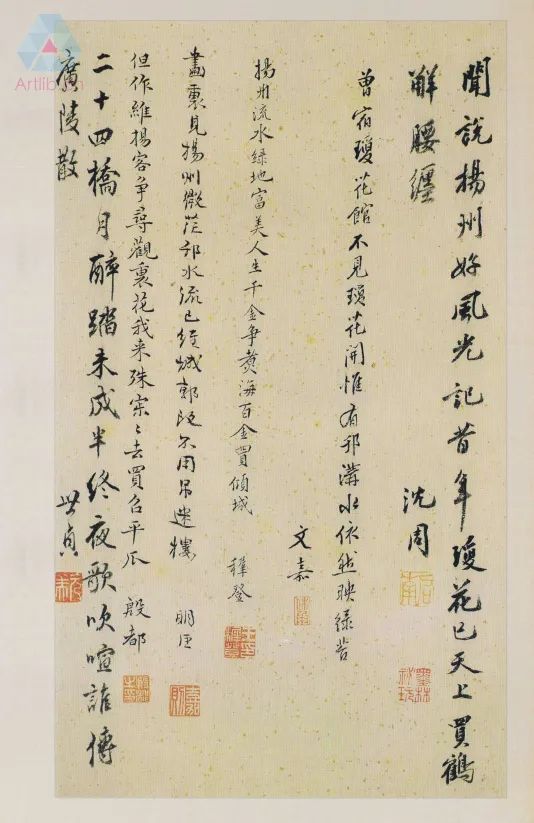 聞說揚州好風光記昔年瓊花已天上買鶴
解腰纏　沈周
啟南
墨林秘玩
曾宿瓊花館不見瓊花開惟有邗溝水依然映綠苔
文嘉
揚州流水綠地富美人生千金爭煑海百金買傾城　穉登
畫裏見揚州微茫邗水流已經城郭改不用吊迷樓　明臣
嘉則
但作維揚客爭尋觀裏花我來殊寂〻去買召平瓜　殷都
二十四橋月醉踏未成半終夜歌吹喧誰傳
廣陵散　世貞
元美
Artlib.cn